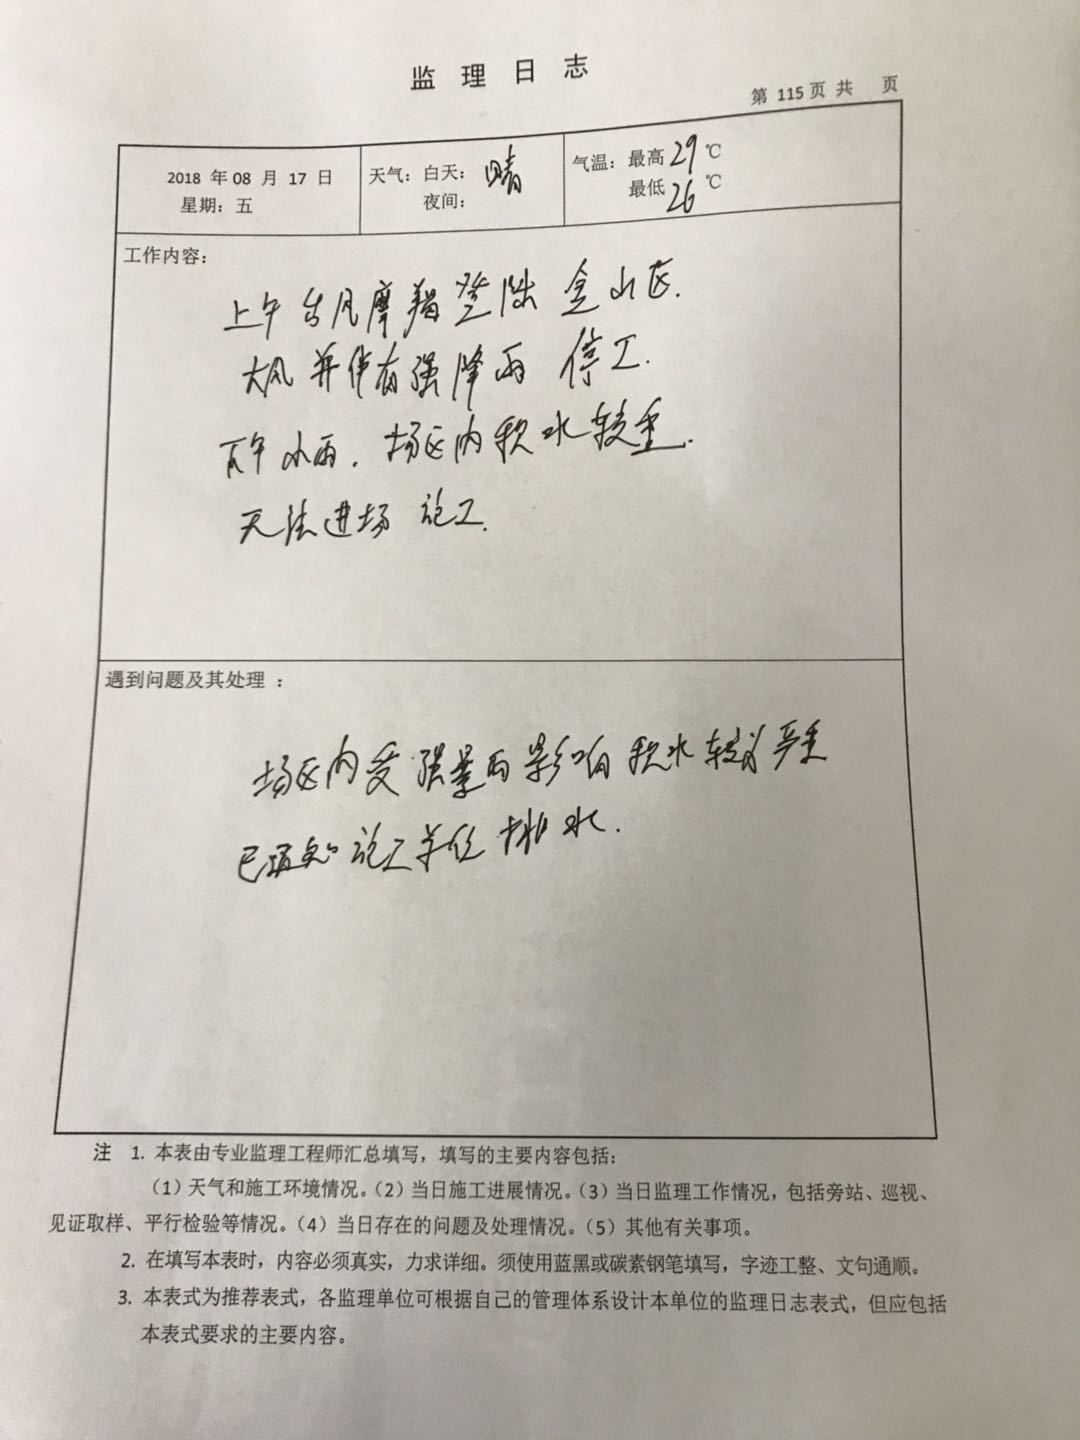 监 理 日 志
第 115 页 共 页
2018 年 08 月 17 日
星期：五
天气：白天：晴
夜间：
气温：最高 29 ℃
最低 26 ℃
工作内容：
上午台风摩羯登陆金山区.
大风并伴有强降雨 停工.
下午小雨. 场区内积水较重.
无法进场 施工.
遇到问题及其处理 ：
场区内受强暴雨影响积水较为严重
已通知施工单位排水.
注 1. 本表由专业监理工程师汇总填写，填写的主要内容包括：
（1）天气和施工环境情况。（2）当日施工进展情况。（3）当日监理工作情况，包括旁站、巡视、
见证取样、平行检验等情况。（4）当日存在的问题及处理情况。（5）其他有关事项。
2. 在填写本表时，内容必须真实，力求详细。须使用蓝黑或碳素钢笔填写，字迹工整、文句通顺。
3. 本表式为推荐表式，各监理单位可根据自己的管理体系设计本单位的监理日志表式，但应包括
本表式要求的主要内容。